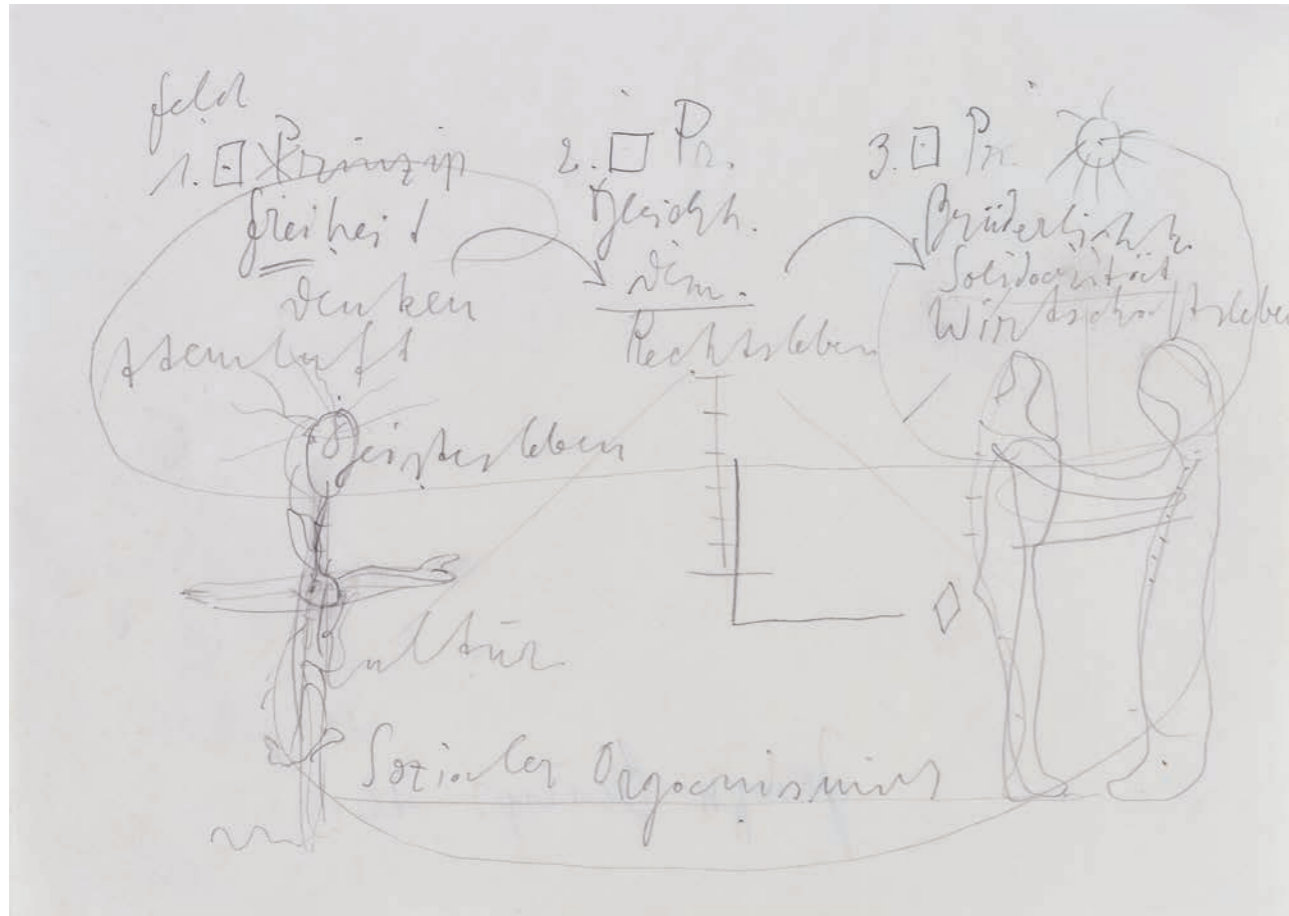 feld
1. Prinzip
Freiheit
denken
Atemluft
Geistesleben
Kultur
2. Pr.
Gleichh.
Dem.
Rechtsleben
3. Pr.
Brüderlichk.
Solidarität
Wirtschaftsleben
Sozialer Organismus